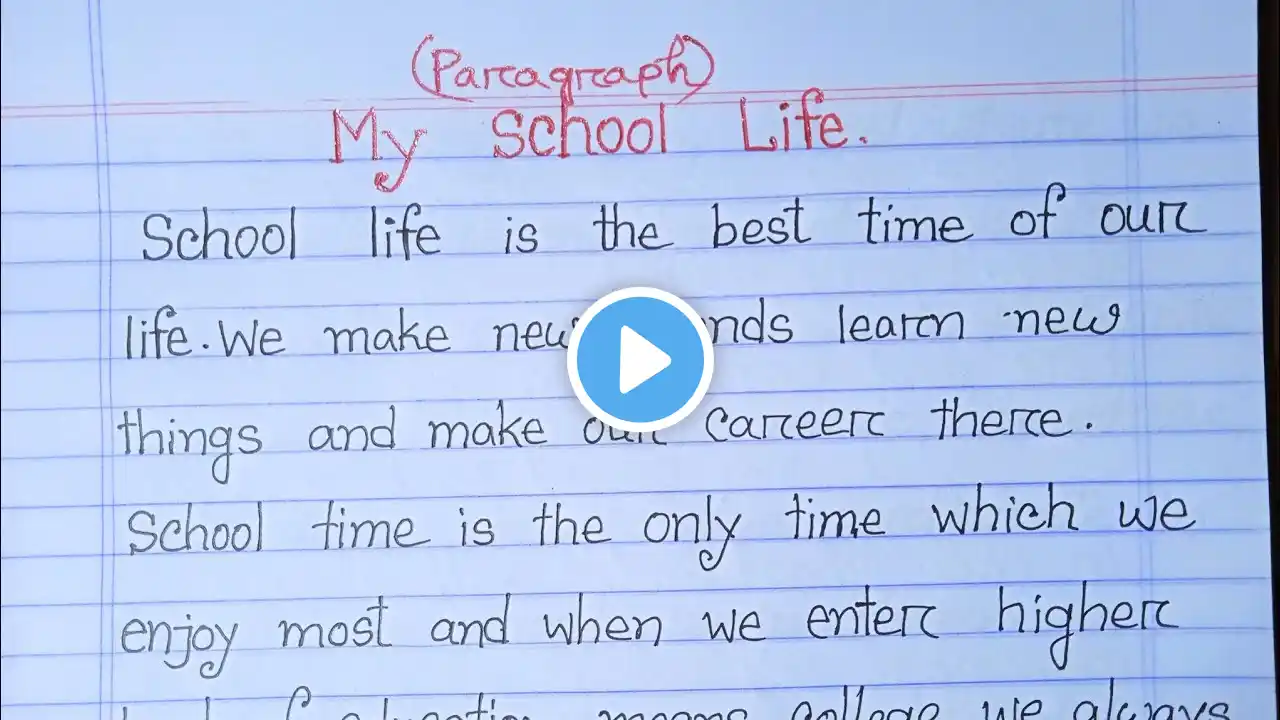 (Paragraph)
My School Life.
School life is the best time of our
life. We make new learn new
things and make our career there.
School time is the only time which we
enjoy most and when we enter higher
means college we always